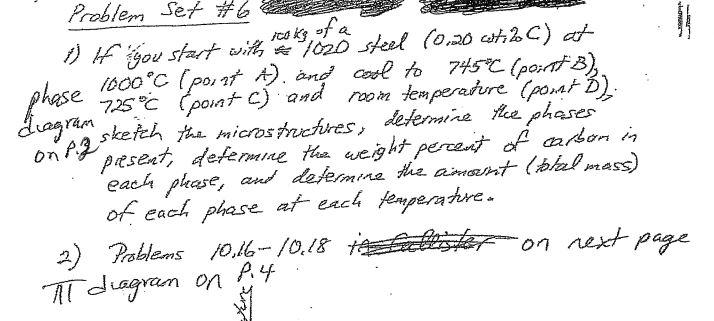 Problem Set #6
100 kg of a
1) If you start with 1020 steel (0.20 wt.% C) at
1000°C (point A). and cool to 745°C (point B),
phase 725°C (point C) and room temperature (point D).
diagram on p.3 sketch the microstructures, determine the phases
present, determine the weight percent of carbon in
each phase, and determine the amount (total mass)
of each phase at each temperature.
2) Problems 10.16-10.18 on next page
TTT diagram on p.4